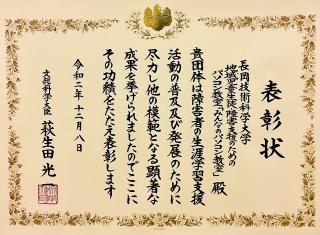 表彰状
長岡技術科学大学
地域児童生徒、障害支援のための
パソコン教室「みんなのパソコン教室」殿
貴団体は障害者の生涯学習支援
活動の普及及び発展のために
尽力し他の模範となる顕著な
成果を挙げられましたのでここに
その功績をたたえ表彰します
令和二年十二月八日
文部科学大臣 萩生田光一